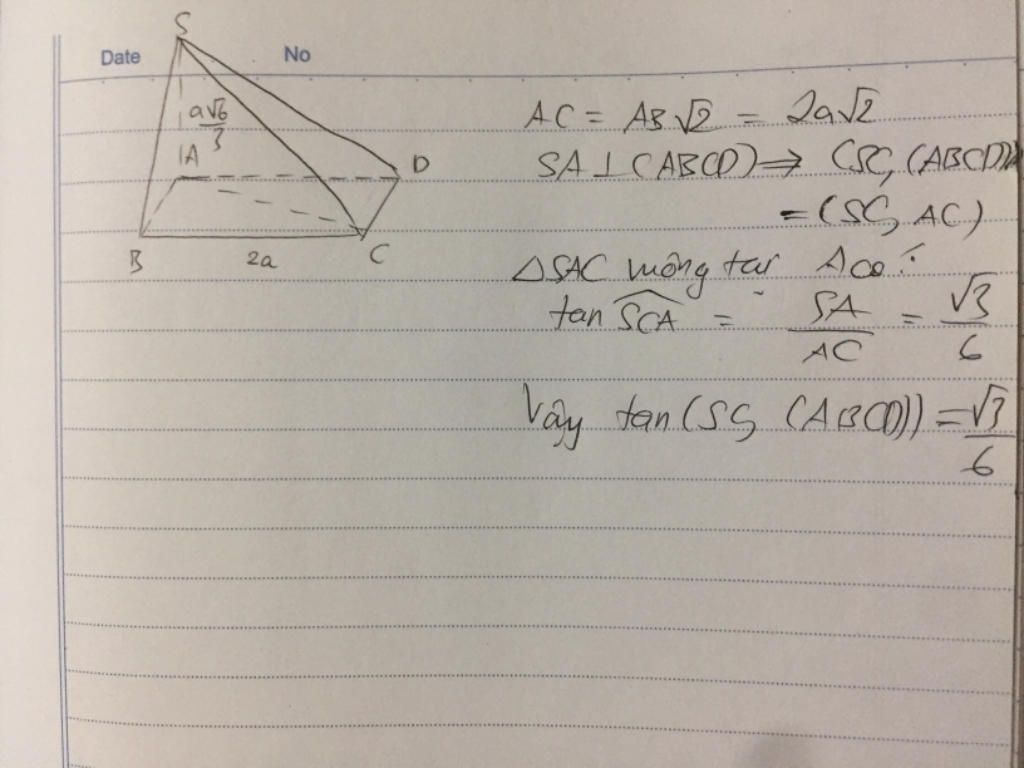 Date No
S
a√6/3
A
D
B 2a C
AC = AB√2 = 2a√2
SA ⊥ (ABCD) ⇒ (SC, (ABCD))
= (SC, AC)
△SAC vuông tại A có :
tan SCA = SA/AC = √3/6
Vậy tan (SC, (ABCD)) = √3/6